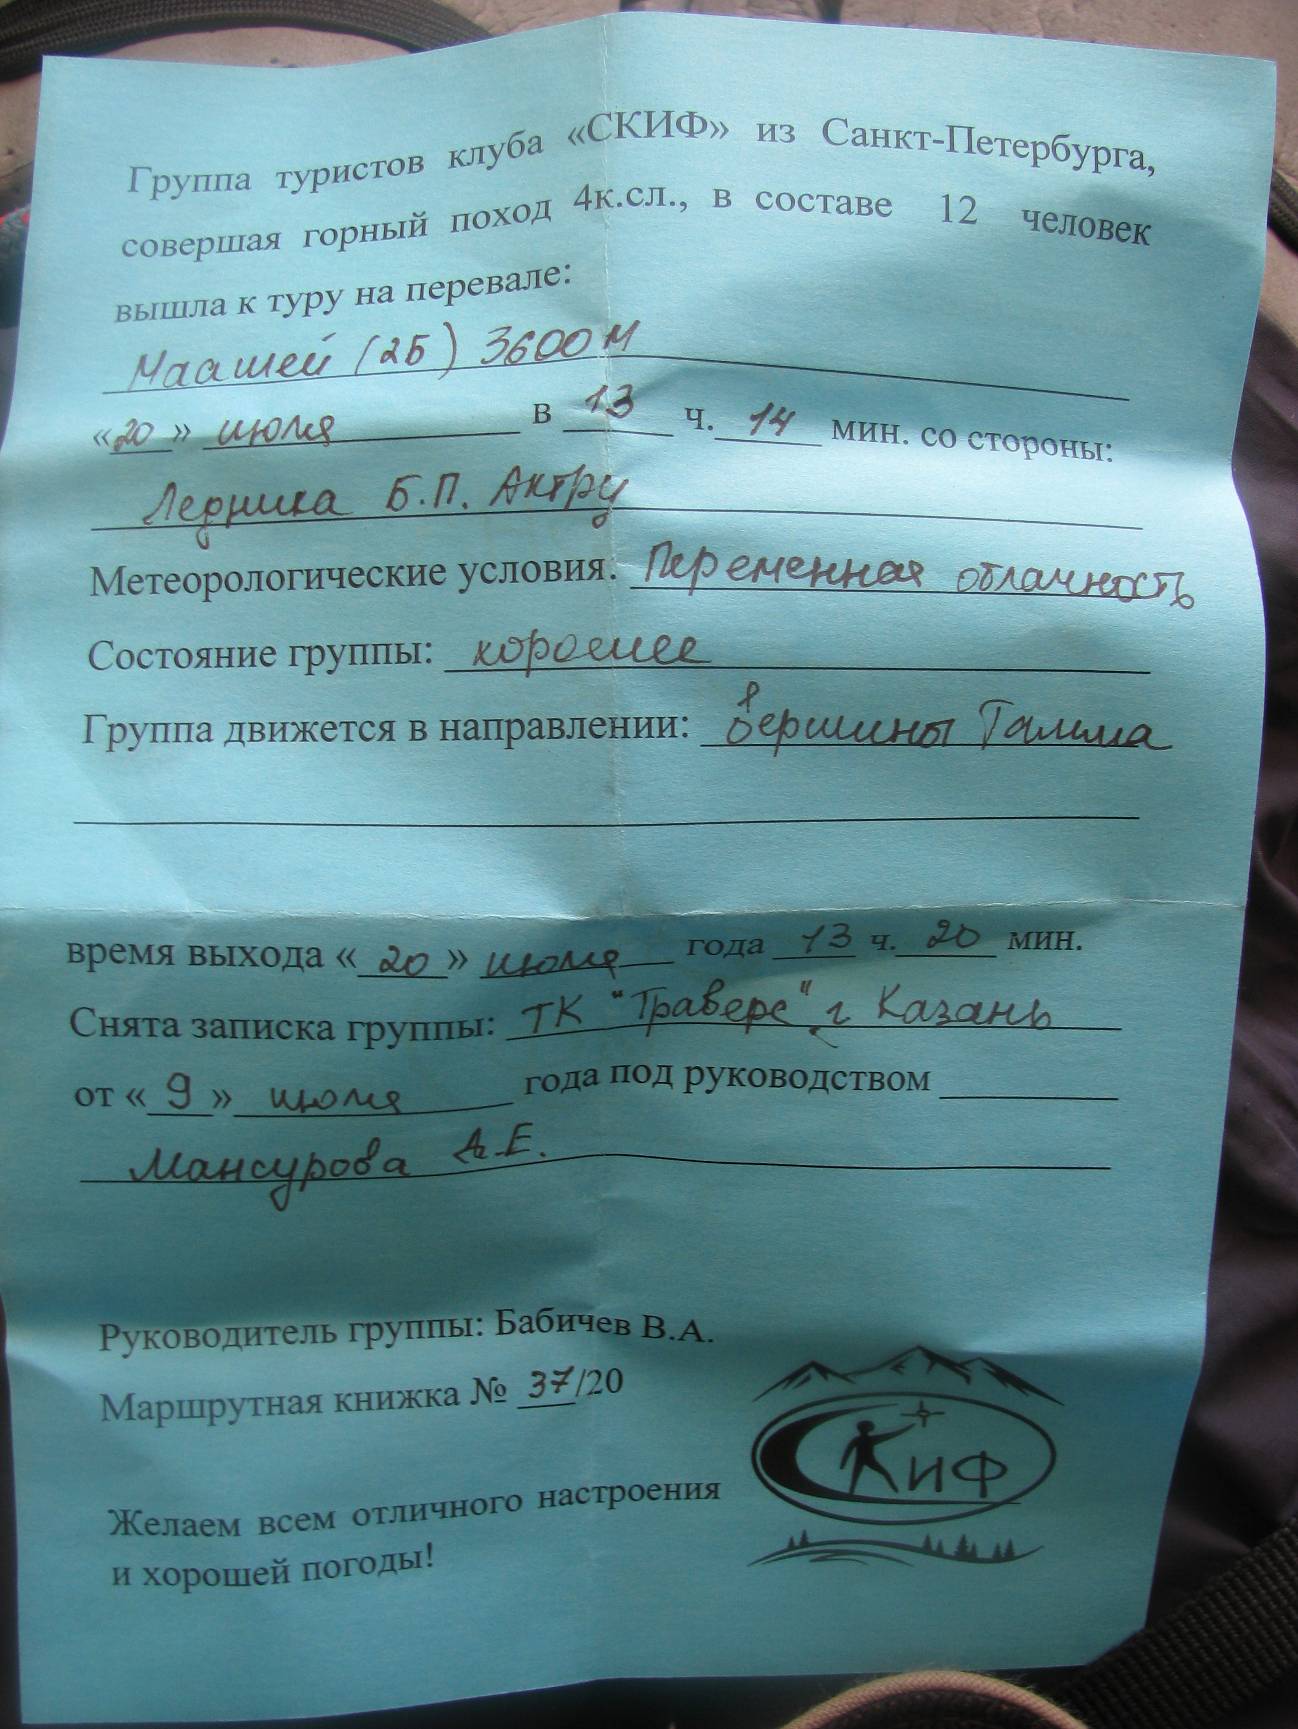 Группа туристов клуба «СКИФ» из Санкт-Петербурга,
совершая горный поход 4к.сл., в составе 12 человек
вышла к туру на перевале:
Маашей (2Б) 3600м
«20» июля в 13 ч. 14 мин. со стороны:
Ледника Б.П. Актру
Метеорологические условия: Переменная облачность
Состояние группы: хорошее
Группа движется в направлении: Вершины Тамма
время выхода «20» июля года 13 ч. 20 мин.
Снята записка группы: ТК "Траверс" г Казань
от «9» июля года под руководством
Мансурова А.Е.
Руководитель группы: Бабичев В.А.
Маршрутная книжка № 37/20
Желаем всем отличного настроения
и хорошей погоды!
СКИФ